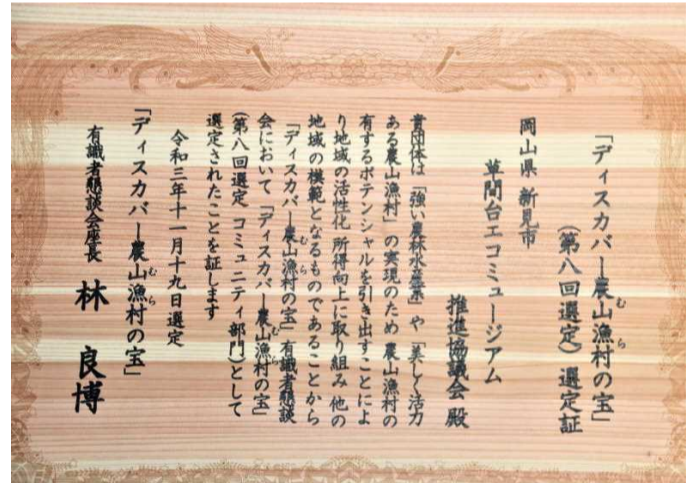 「ディスカバー農山漁村の宝」
むら
(第八回選定)選定証
岡山県 新見市
草間台エコミュージアム
推進協議会 殿
貴団体は「強い農林水産業」や「美しく活力
ある農山漁村」の実現のため 農山漁村の
有するポテンシャルを引き出すことによ
り地域の活性化 所得向上に取り組み 他の
地域の模範となるものであることから
「ディスカバー農山漁村の宝」有識者懇談
むら
会において「ディスカバー農山漁村の宝」
むら
(第八回選定 コミュニティ部門)として
選定されたことを証します
令和三年十一月十九日選定
「ディスカバー農山漁村の宝」
むら
有識者懇談会座長 林 良博